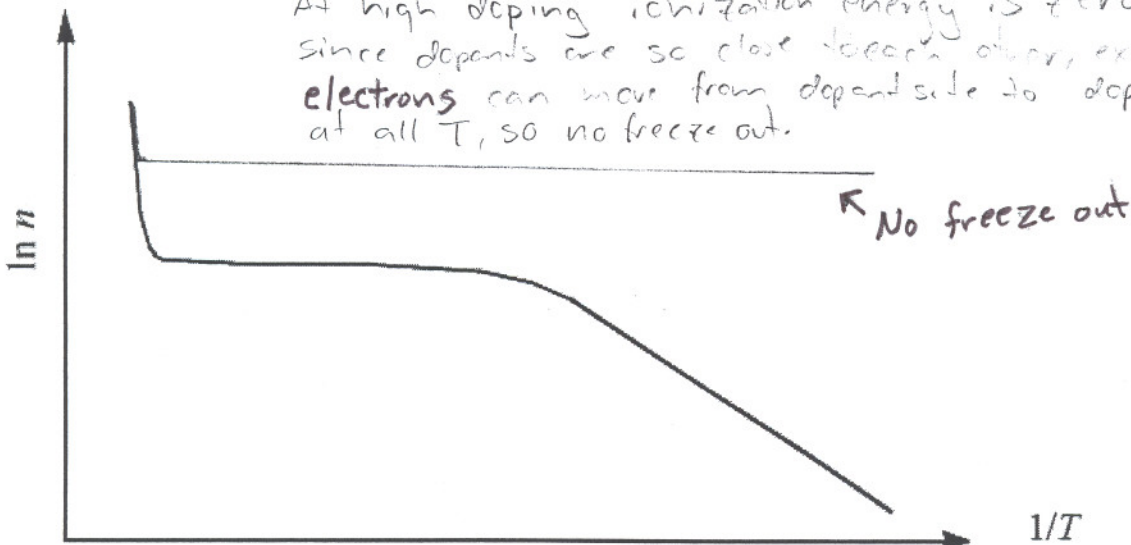 At high doping ionization energy is zero
since dopants are so close to each other, ex
electrons can move from dopant site to dop
at all T, so no freeze out.
No freeze out
ln n
1/T